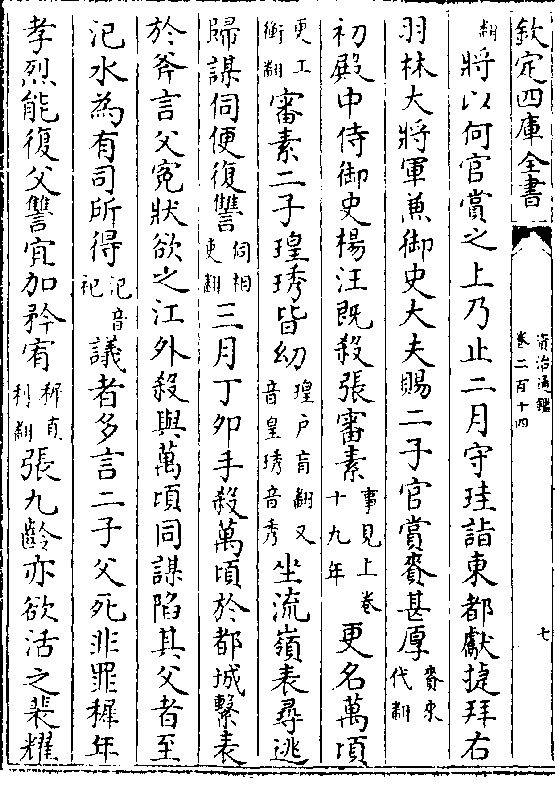 欽定四庫全書
資治通鑑
卷二百十四
七
翻將以何官賞之上乃止二月守珪詣東都獻捷拜右
羽林大將軍兼御史大夫賜二子官賞賚甚厚賚來代翻
初殿中侍御史楊汪既殺張審素事見上卷十九年更名萬頃
更工衡翻審素二子瑝琇皆幼瑝户盲翻又音皇琇音秀坐流嶺表尋逃
歸謀伺便復讐伺相吏翻三月丁卯手殺萬頃於都城繫表
於斧言父寃狀欲之江外殺與萬頃同謀陷其父者至
汜水為有司所得汜音祀議者多言二子父死非罪穉年
孝烈能復父讐宜加矜宥穉直利翻張九齡亦欲活之裴耀